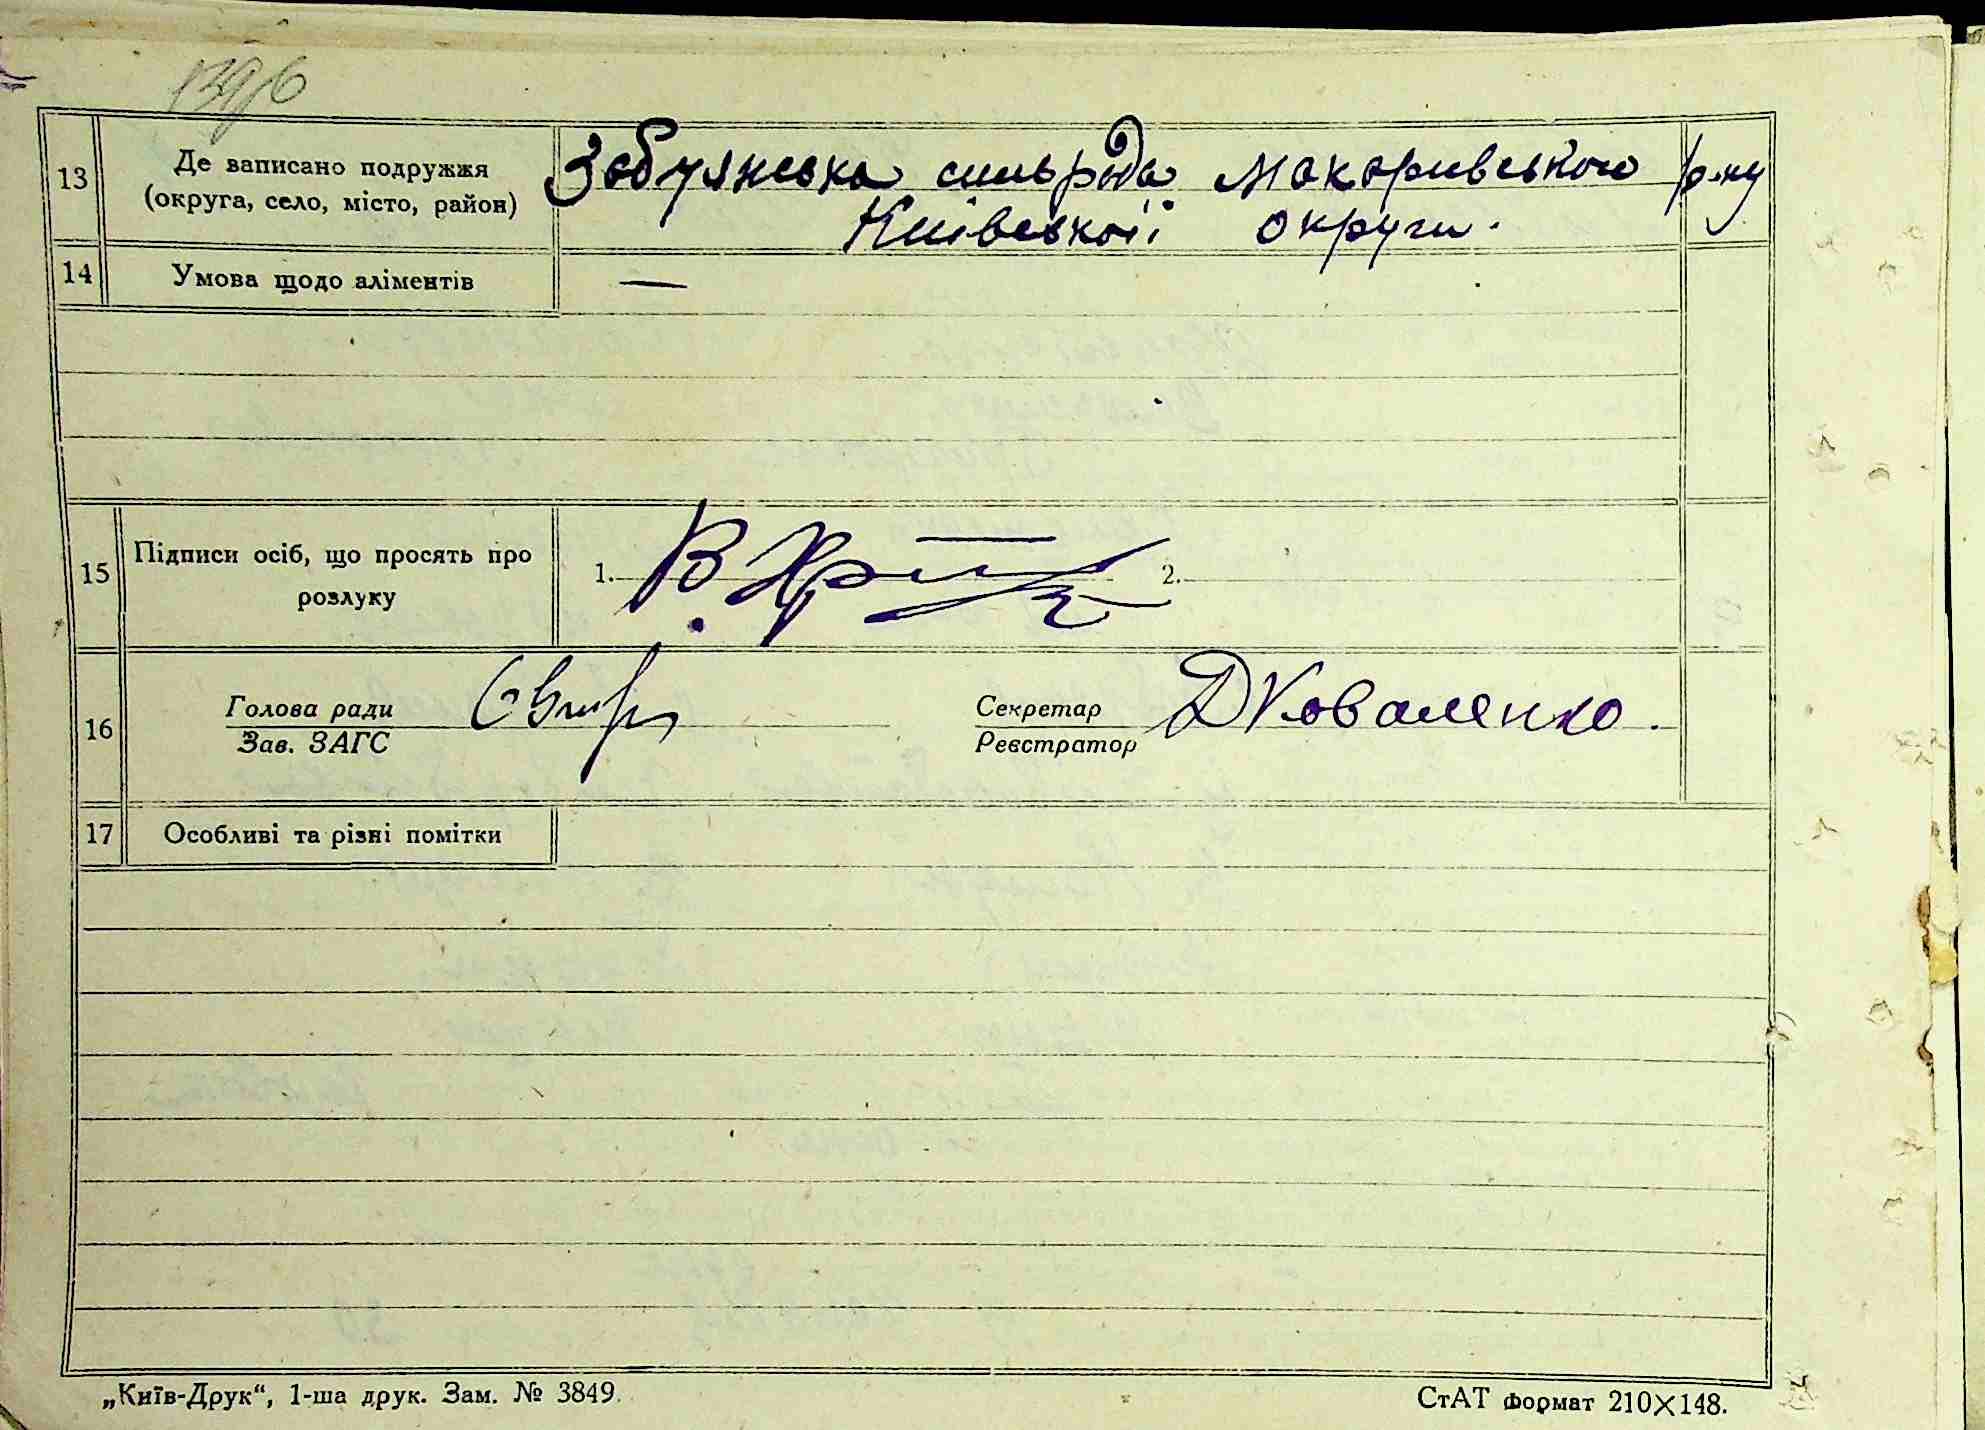 139б
13 Де записано подружжя (округа, село, місто, район)
Забуянська сільрада Макарівського р-ну
Київської округи.
14 Умова щодо аліментів —
15 Підписи осіб, що просять про розлуку 1. 2.
16 Голова ради
Зав. ЗАГС
Секретар ДКоваленко.
Реєстратор
17 Особливі та різні помітки
„Київ-Друк“, 1-ша друк. Зам. № 3849.
СтАТ формат 210×148.